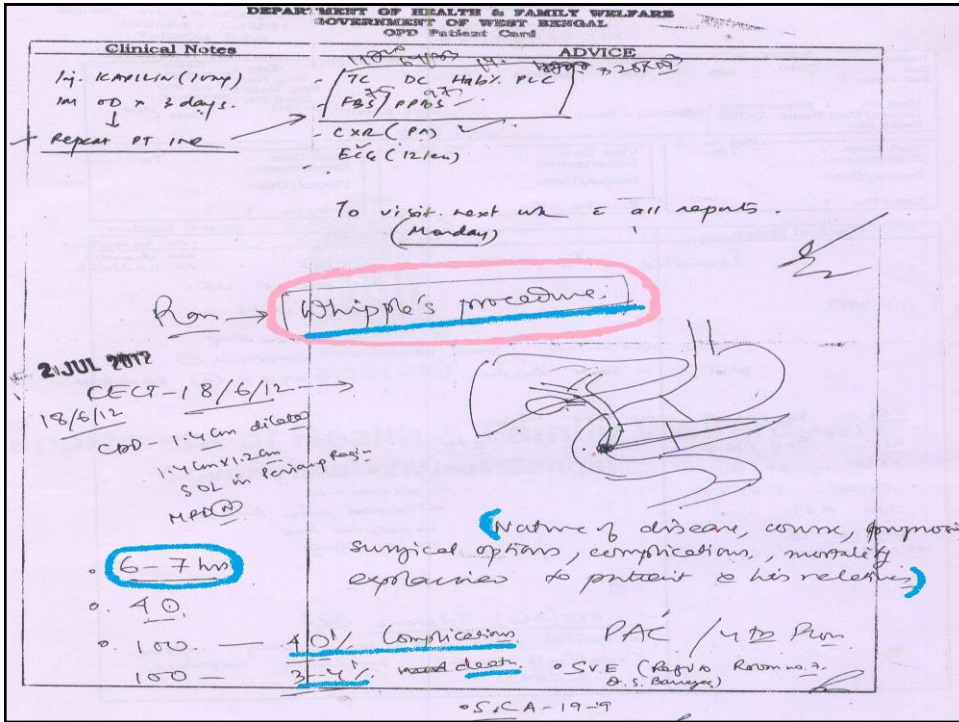 DEPARTMENT OF HEALTH & FAMILY WELFARE
GOVERNMENT OF WEST BENGAL
OPD Patient Card
Clinical Notes
ADVICE
Inj. KAPILIN (10mg)
IM OD x 3 days.
Repeat PT INR
TC DC Hb% PLC
FBS / PPBS
CXR (PA)
ECG (12 lead)
To visit next wk c all reports.
(Monday)
Plan → Whipple's procedure.
2 JUL 2012
CECT - 18/6/12 →
18/6/12
CBD - 1.4 cm dilated
1.4 cm x 1.2 cm
SOL in Periamp Regn
MPD (N)
(Nature of disease, course, prognosis
surgical options, complications, mortality
explained to patient & his relatives)
6-7 hrs
40
100 — 40% Complications
100 — 3-4% death
PAC
SVE (Room no. 2.
CA-19-9